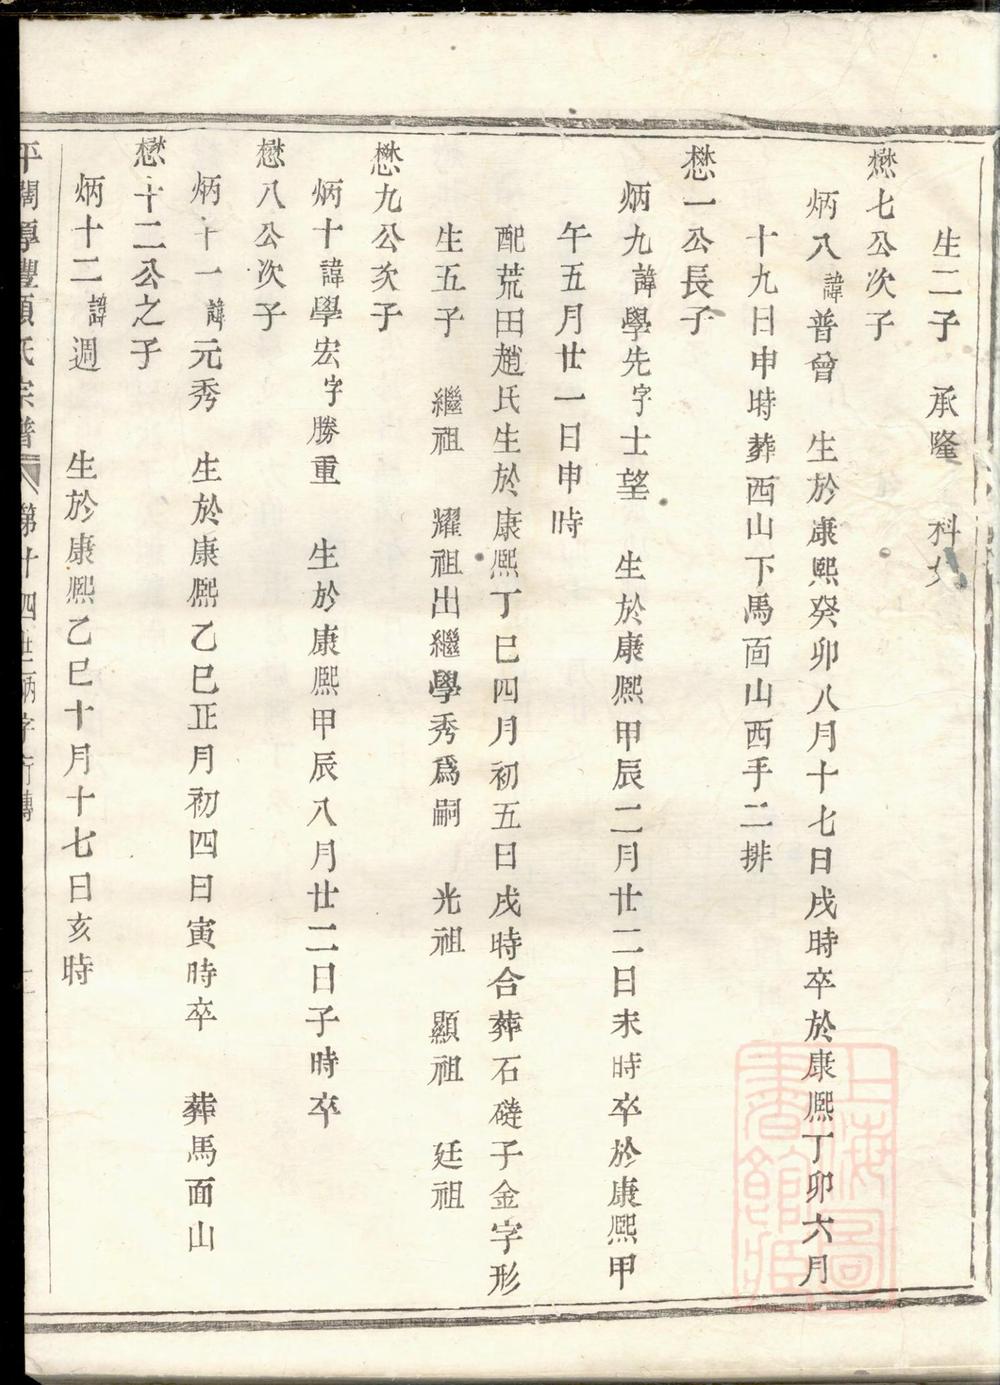 生二子 承隆 科
懋七公次子
炳八諱普曾 生於康熙癸卯八月十七日戌時卒於康熙丁卯六月
十九日申時葬西山下馬面山西手二排
懋一公長子
炳九諱學先字士望 生於康熙甲辰二月廿二日未時卒於康熙甲
午五月廿一日申時
配荒田趙氏生於康熙丁巳四月初五日戌時合葬石磋子金字形
生五子 繼祖 耀祖出繼學秀爲嗣 光祖 顯祖 廷祖
懋九公次子
炳十諱學宏字勝重 生於康熙甲辰八月廿二日子時卒
懋八公次子
炳十一諱元秀 生於康熙乙巳正月初四日寅時卒 葬馬面山
懋十二公之子
炳十二諱週 生於康熙乙巳十月十七日亥時
宗譜 第十四世炳字行
上海圖書館藏